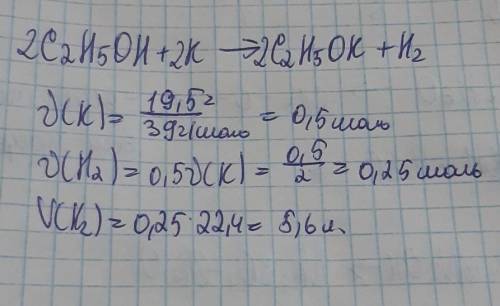 2C₂H5OH + 2K → 2C₂H5OK + H₂
ν(K) = 19,5г / 39г/моль = 0,5 моль
ν(H₂) = 0,5ν(K) = 0,5 / 2 = 0,25 моль
V(H₂) = 0,25 · 22,4 = 5,6 л.